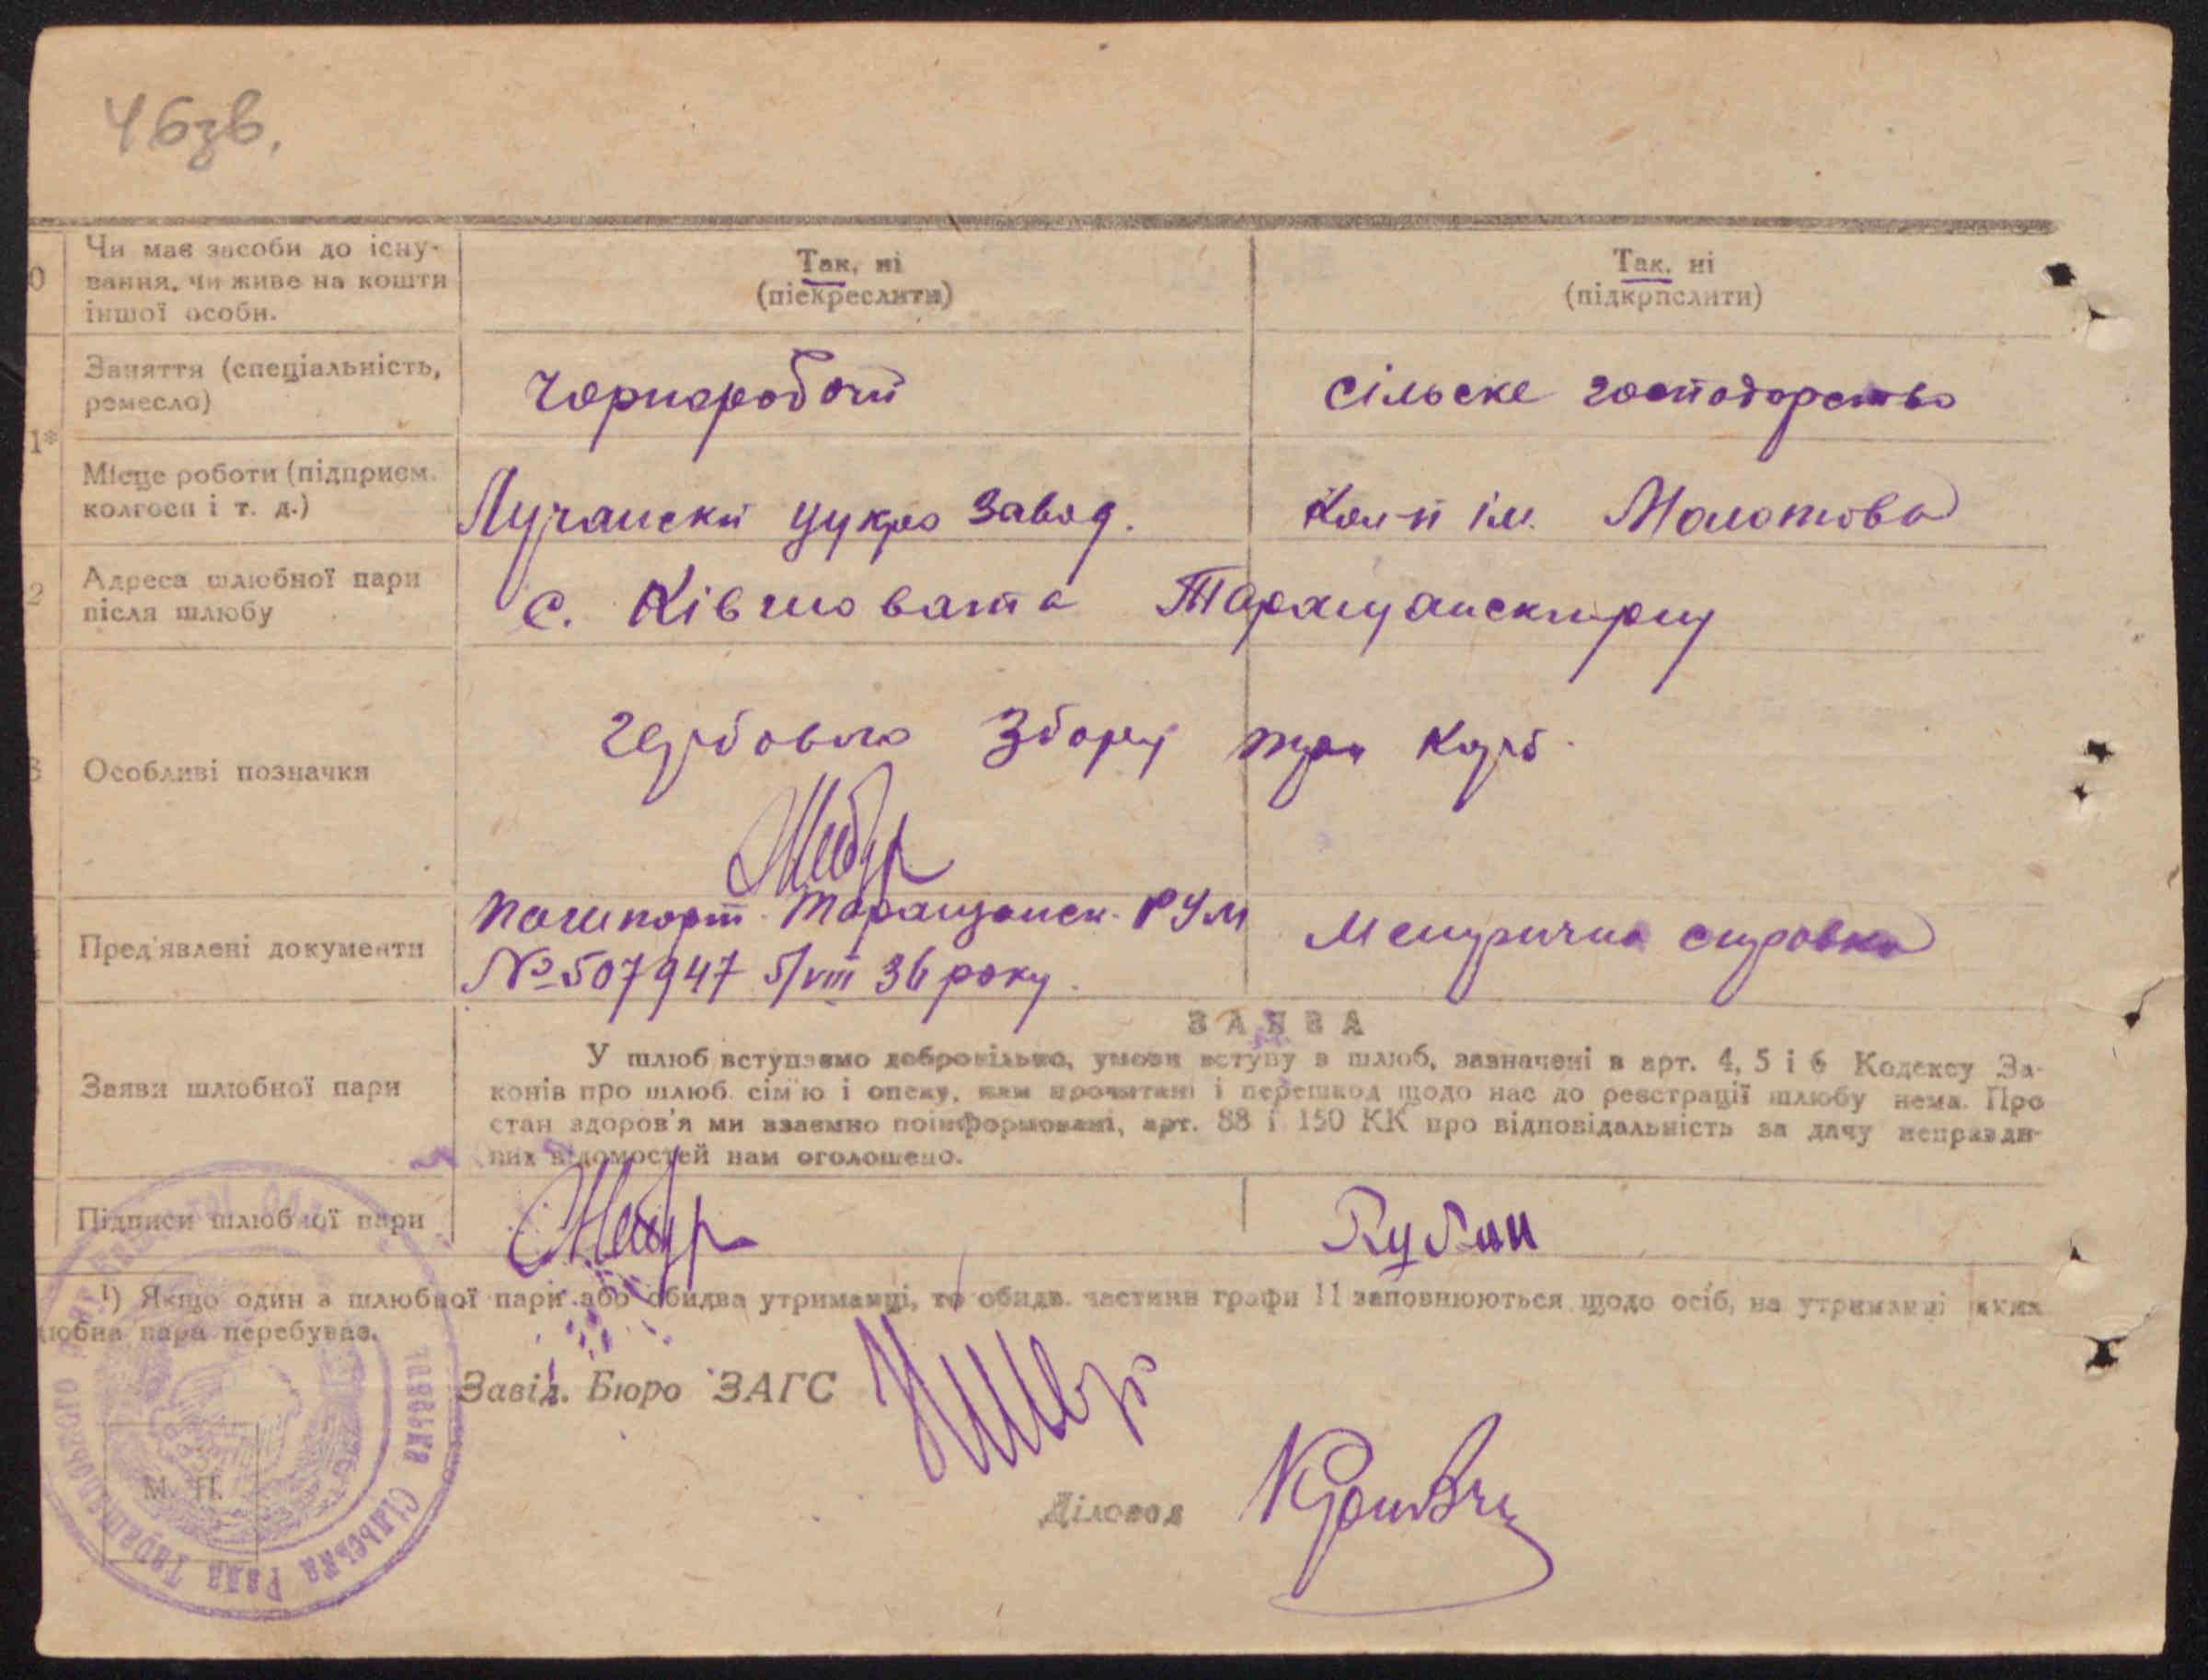 46зв.
0 Чи має засоби до існу-
вання, чи живе на кошти
іншої особи.
Так, ні
(піекреслити)
Так, ні
(підкрпслити)
Заняття (спеціальність,
ремесло)
Чорноробочи
сільске господорство
1*
Місце роботи (підприєм.
колгосп і т. д.)
Лучански цукро завод.
Кол-п ім. Молотова
2 Адреса шлюбної пари
після шлюбу
с. Ківшовата Таращанск
3 Особливі позначки
Гербового Збору три карб.
Пред'явлені документи
Пашпорт Таращанск. РУМ
№ 507947 5/VIII 36 року.
справка
ЗАЯВА
Заяви шлюбної пари
У шлюб вступаємо добровільно, умови вступу в шлюб, зазначені в арт. 4, 5 і 6 Кодексу За-
конів про шлюб сім'ю і опеку, нам прочитані і перешкод щодо нас до реєстрації шлюбу нема. Про
стан здоров'я ми взаємно поінформовані, арт. 88 і 150 КК про відповідальність за дачу неправди-
вих відомостей нам оголошено.
Підписи шлюбної пари
Рубан
¹) Якщо один з шлюбної пари або обидва утриманці, то обидв. частини графи 11 заповнюються щодо осіб, на утриманні яких
любна пара перебуває.
Завід. Бюро ЗАГС
Діловод
М. П.
Сільська Рада Таращанського